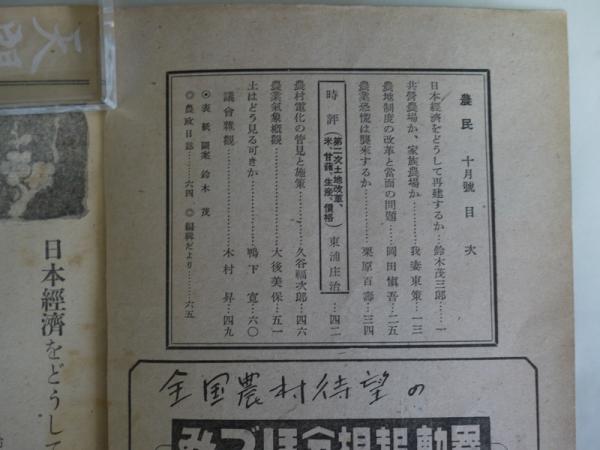 農民 十月號 目次
日本經濟をどうして再建するか……鈴木茂三郎……一
共營農場か、家族農場か……我妻東策……一三
農地制度の改革と當面の問題……岡田愼吾……二五
農業恐慌は襲來するか……栗原百壽……三四
時評(第二次土地改革、米、甘藷、生産、價格)東浦庄治……四二
農村電化の管見と施策……久谷福次郎……四六
農業氣象概觀……大後美保……五一
土はどう見る可きか……鴨下寛……六〇
議會雜觀……木村昇……四九
◎表紙圖案 鈴木茂
◎農政日誌……六四 ◎編輯だより……六五
日本經濟をどうして
全国農村待望の